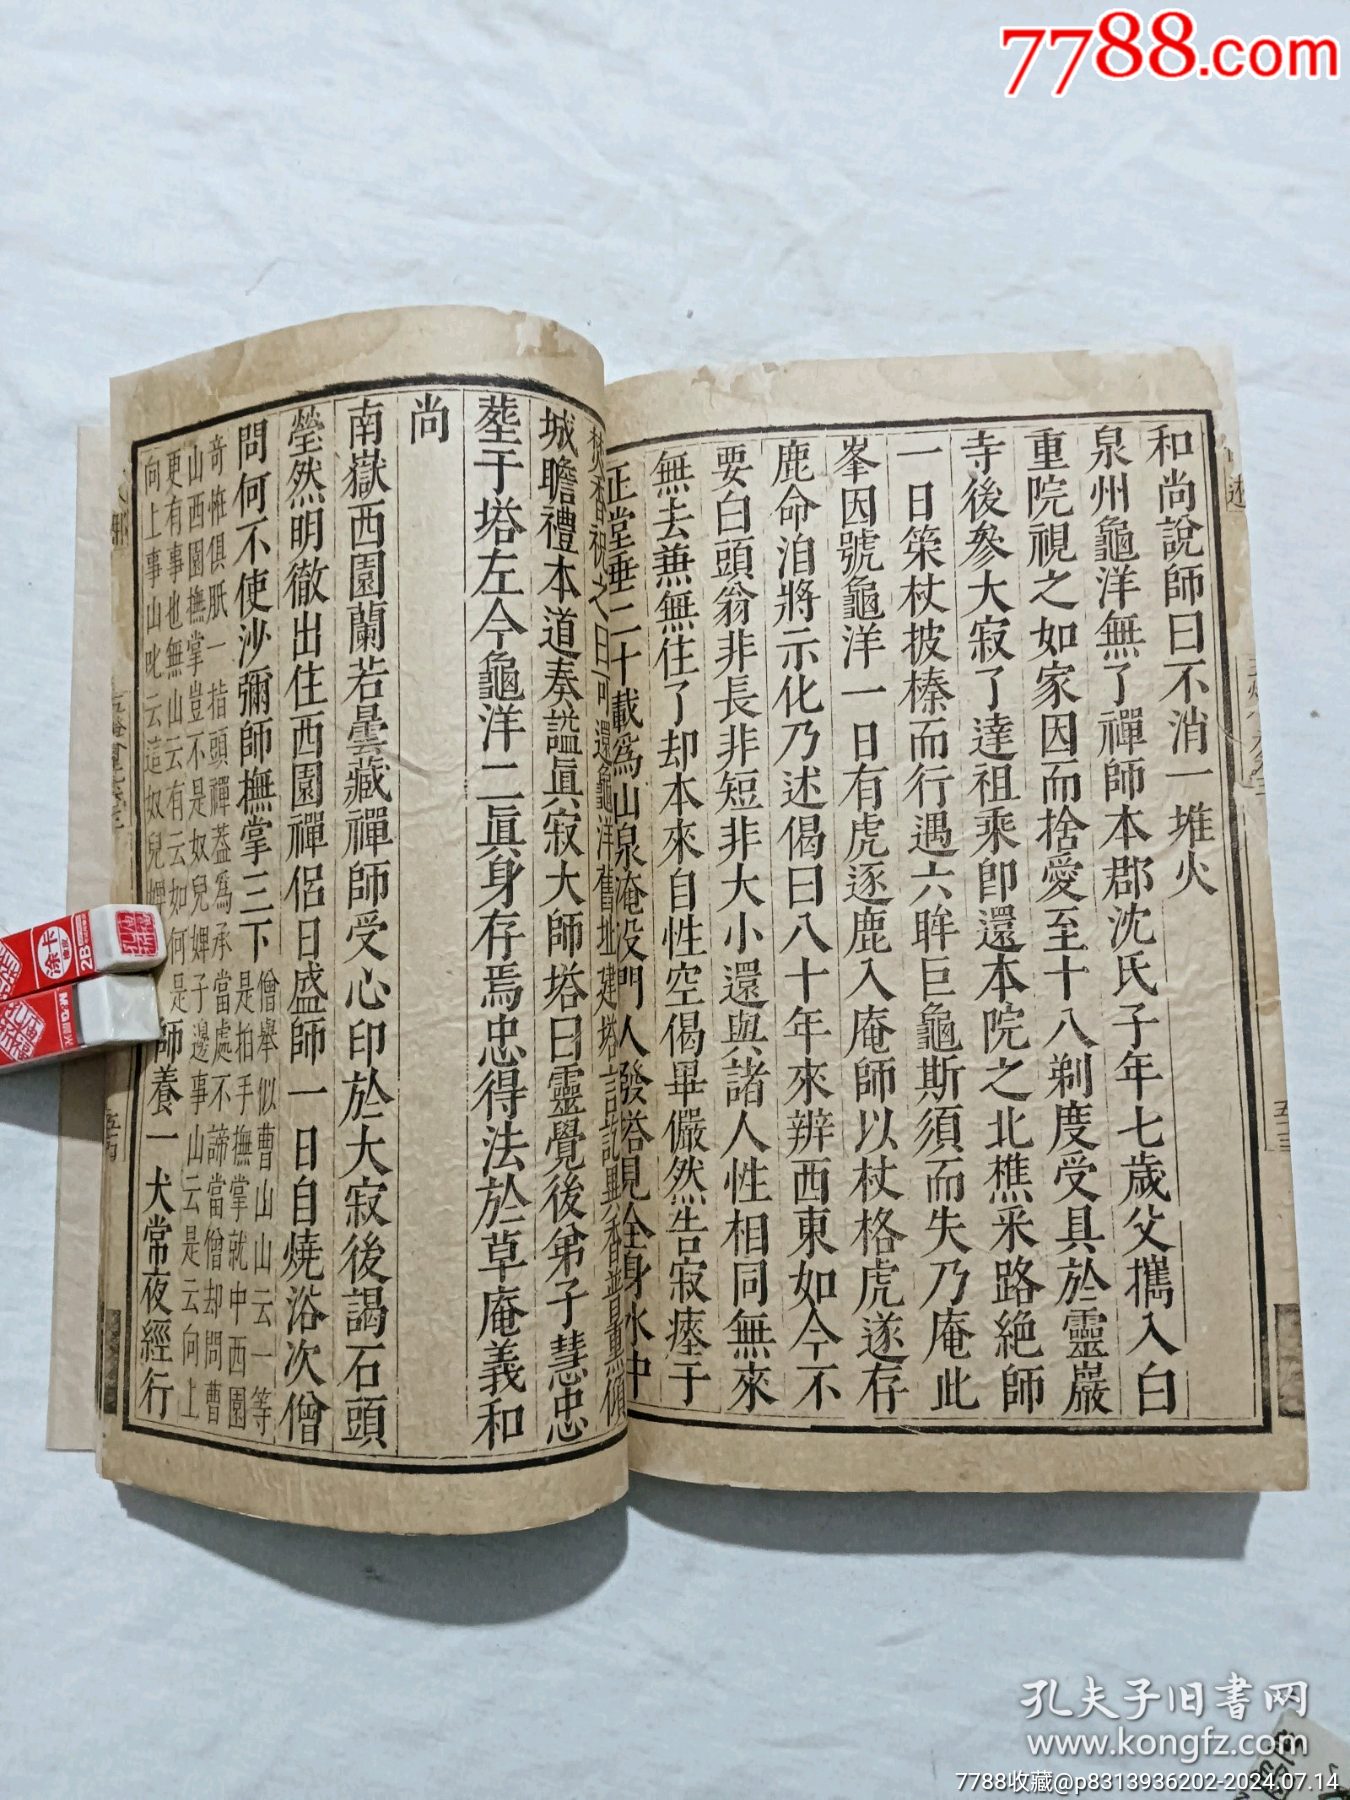 7788.com
和尚說師曰不消一堆火
泉州龜洋無了禪師本郡沈氏子年七歲父攜入白
重院視之如家因而捨愛至十八剃度受具於靈巖
寺後參大寂了達祖乘卽還本院之北樵采路絕師
一日策杖披榛而行遇六眸巨龜斯須而失乃庵此
峯因號龜洋一日有虎逐鹿入庵師以杖格虎遂存
鹿命洎將示化乃述偈曰八十年來辨西東如今不
要白頭翁非長非短非大小還與諸人性相同無來
無去兼無住了却本來自性空偈畢儼然告寂瘞于
正堂垂二十載為山泉淹没門人發塔見全身水中
焚香祝之曰可還龜洋舊址建塔言訖興香普薰
城瞻禮本道奏諡眞寂大師塔曰靈覺後弟子慧忠
塟于塔左今龜洋二眞身存焉忠得法於草庵義和
尚
南嶽西園蘭若曇藏禪師受心印於大寂後謁石頭
瑩然明徹出住西園禪侶日盛師一日自燒浴次僧
問何不使沙彌師撫掌三下
僧舉似曹山山云一等
是拍手撫掌就中西園
奇怪俱胝一指頭禪蓋為承當處不諦當僧却問曹
山西園撫掌豈不是奴兒婢子邊事山云是云向上
更有事也無山云有云如何是
向上事山叱云這奴兒婢
師養一犬常夜經行
涂卡
2B
孔夫子旧书网
www.kongfz.com
7788收藏@p8313936202-2024.07.14